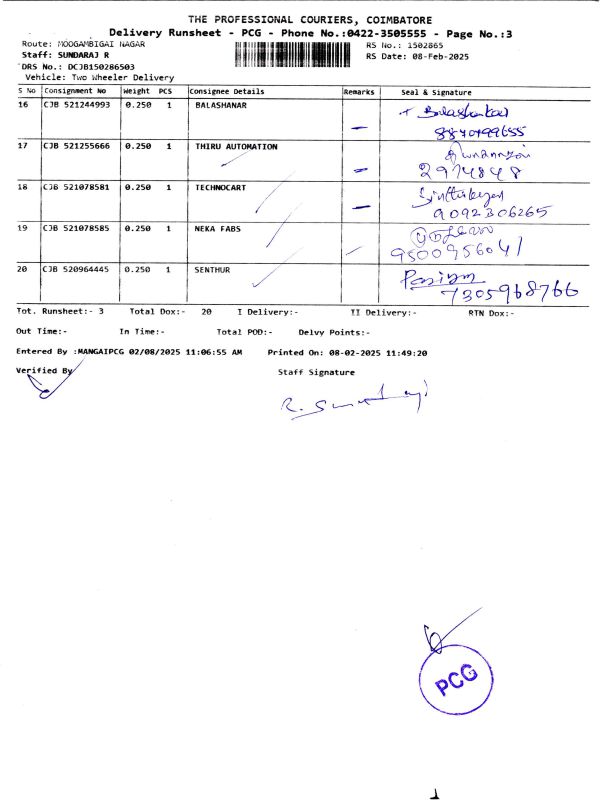 THE PROFESSIONAL COURIERS, COIMBATORE
Delivery Runsheet - PCG - Phone No.:0422-3505555 - Page No.:3
Route: MOOGAMBIGAI NAGAR RS No.: 1502865
Staff: SUNDARAJ R RS Date: 08-Feb-2025
DRS No.: DCJB150286503
Vehicle: Two Wheeler Delivery
S No Consignment No Weight PCS Consignee Details Remarks Seal & Signature
16 CJB 521244993 0.250 1 BALASHANAR Balashankar
8840499655
17 CJB 521255666 0.250 1 THIRU AUTOMATION
2974848
18 CJB 521078581 0.250 1 TECHNOCART
9092306265
19 CJB 521078585 0.250 1 NEKA FABS
9500956041
20 CJB 520964445 0.250 1 SENTHUR
7305968766
Tot. Runsheet:- 3 Total Dox:- 20 I Delivery:- II Delivery:- RTN Dox:-
Out Time:- In Time:- Total POD:- Delvy Points:-
Entered By :MANGAIPCG 02/08/2025 11:06:55 AM Printed On: 08-02-2025 11:49:20
Verified By Staff Signature
PCG